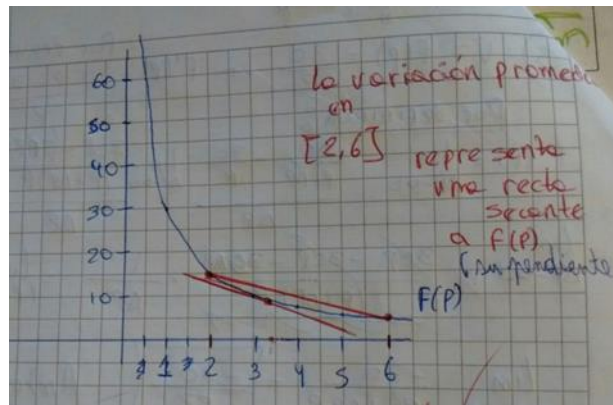 60
50
40
30
20
10
la variación promedio
en
[2,6]
representa
una recta
secante
a F(P)
(su pendiente
F(P)
1 2 3 4 5 6